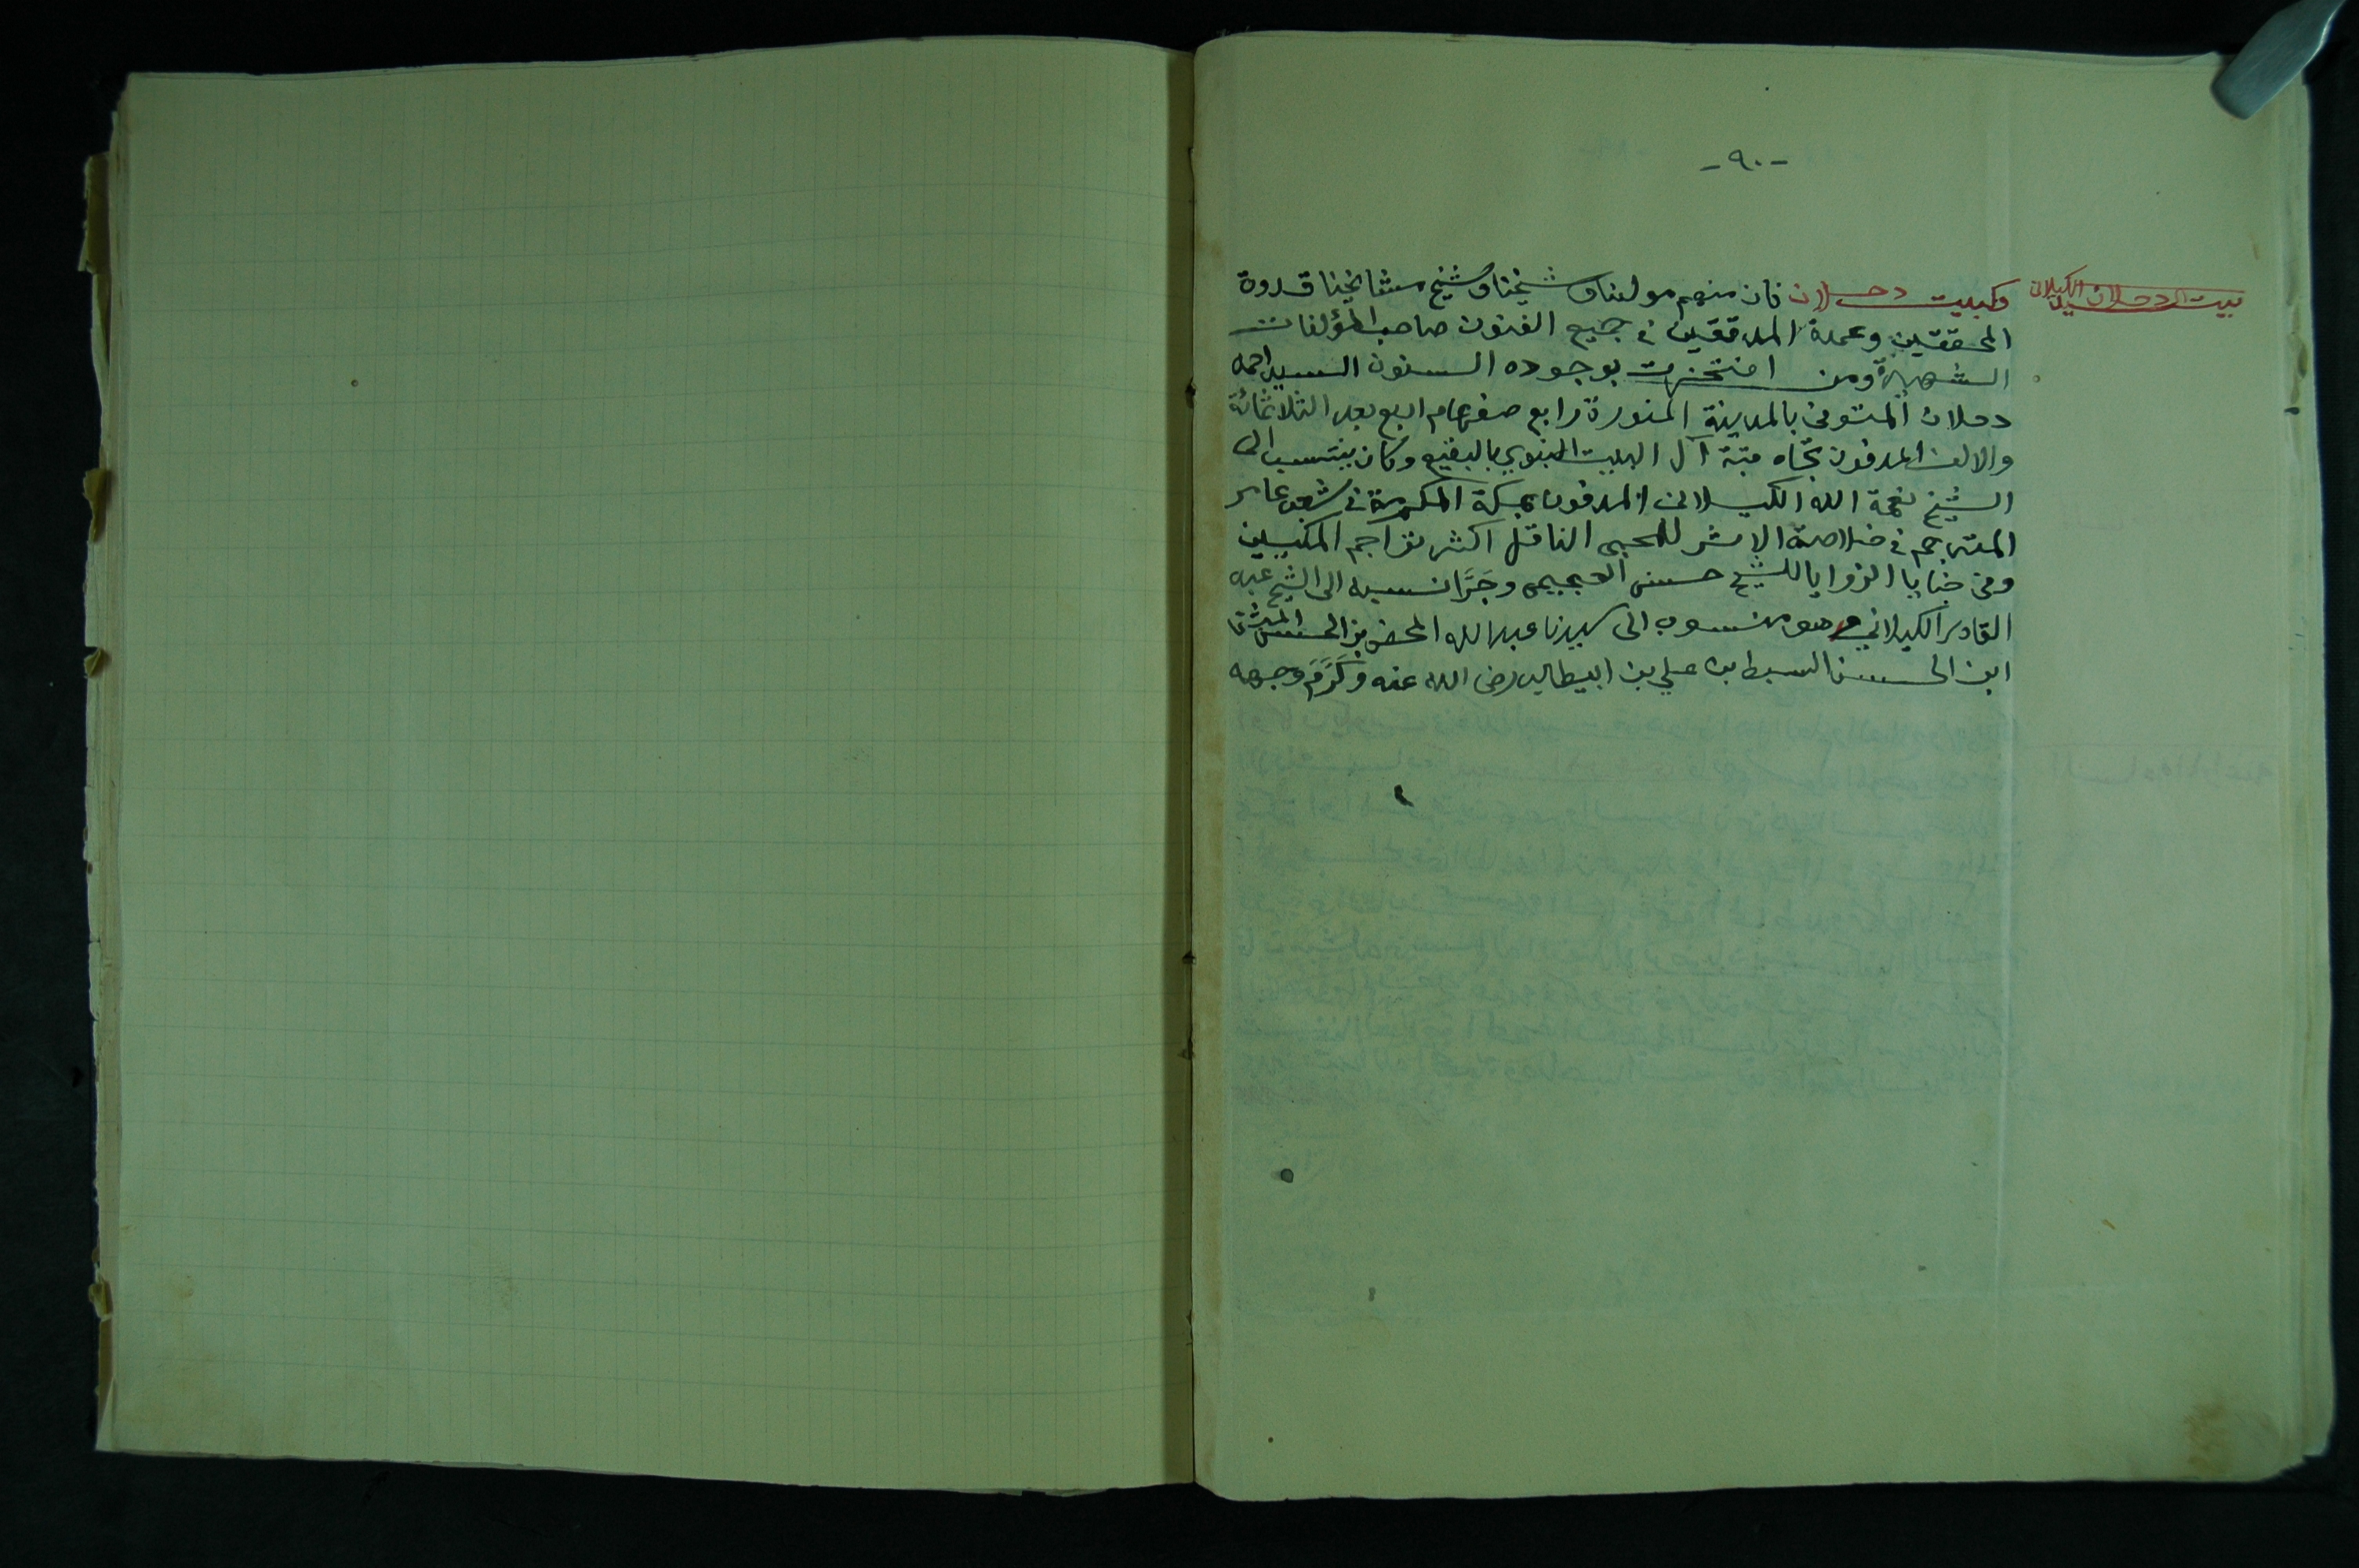 -٩٠-
بيت الدحلان الكيلانى
وكبيت دحلان فان منهم مولينا وشيخنا وشيخ مشائخينا قدوة
المحققين وعمدة المدققين فى جميع الفنون صاحب المؤلفات
الشهيرة ومن افتخرت بوجوده السنون السيد احمد
دحلان المتوفى بالمدينة المنورة رابع صفر عام اربع بعد الثلاثمائة
والالف المدفون تجاه قبة آل البيت النبوي بالبقيع وكان ينتسب الى
الشيخ نعمة الله الكيلانى المدفون بمكة المكرمة فى شعب عامر
المترجم فى خلاصة الاثر للمحبى الناقل اكثر تراجم المكيين
وفى خبايا الزوايا للشيخ حسن العجيمى وجَرَّ نسبه الى الشيخ عبد
القادر الكيلاني وهو منسوب الى سيدنا عبد الله المحض بن الحسن المثنى
ابن الحسن السبط بن علي بن ابيطالب رضى الله عنه وكَرَّمَ وجهه